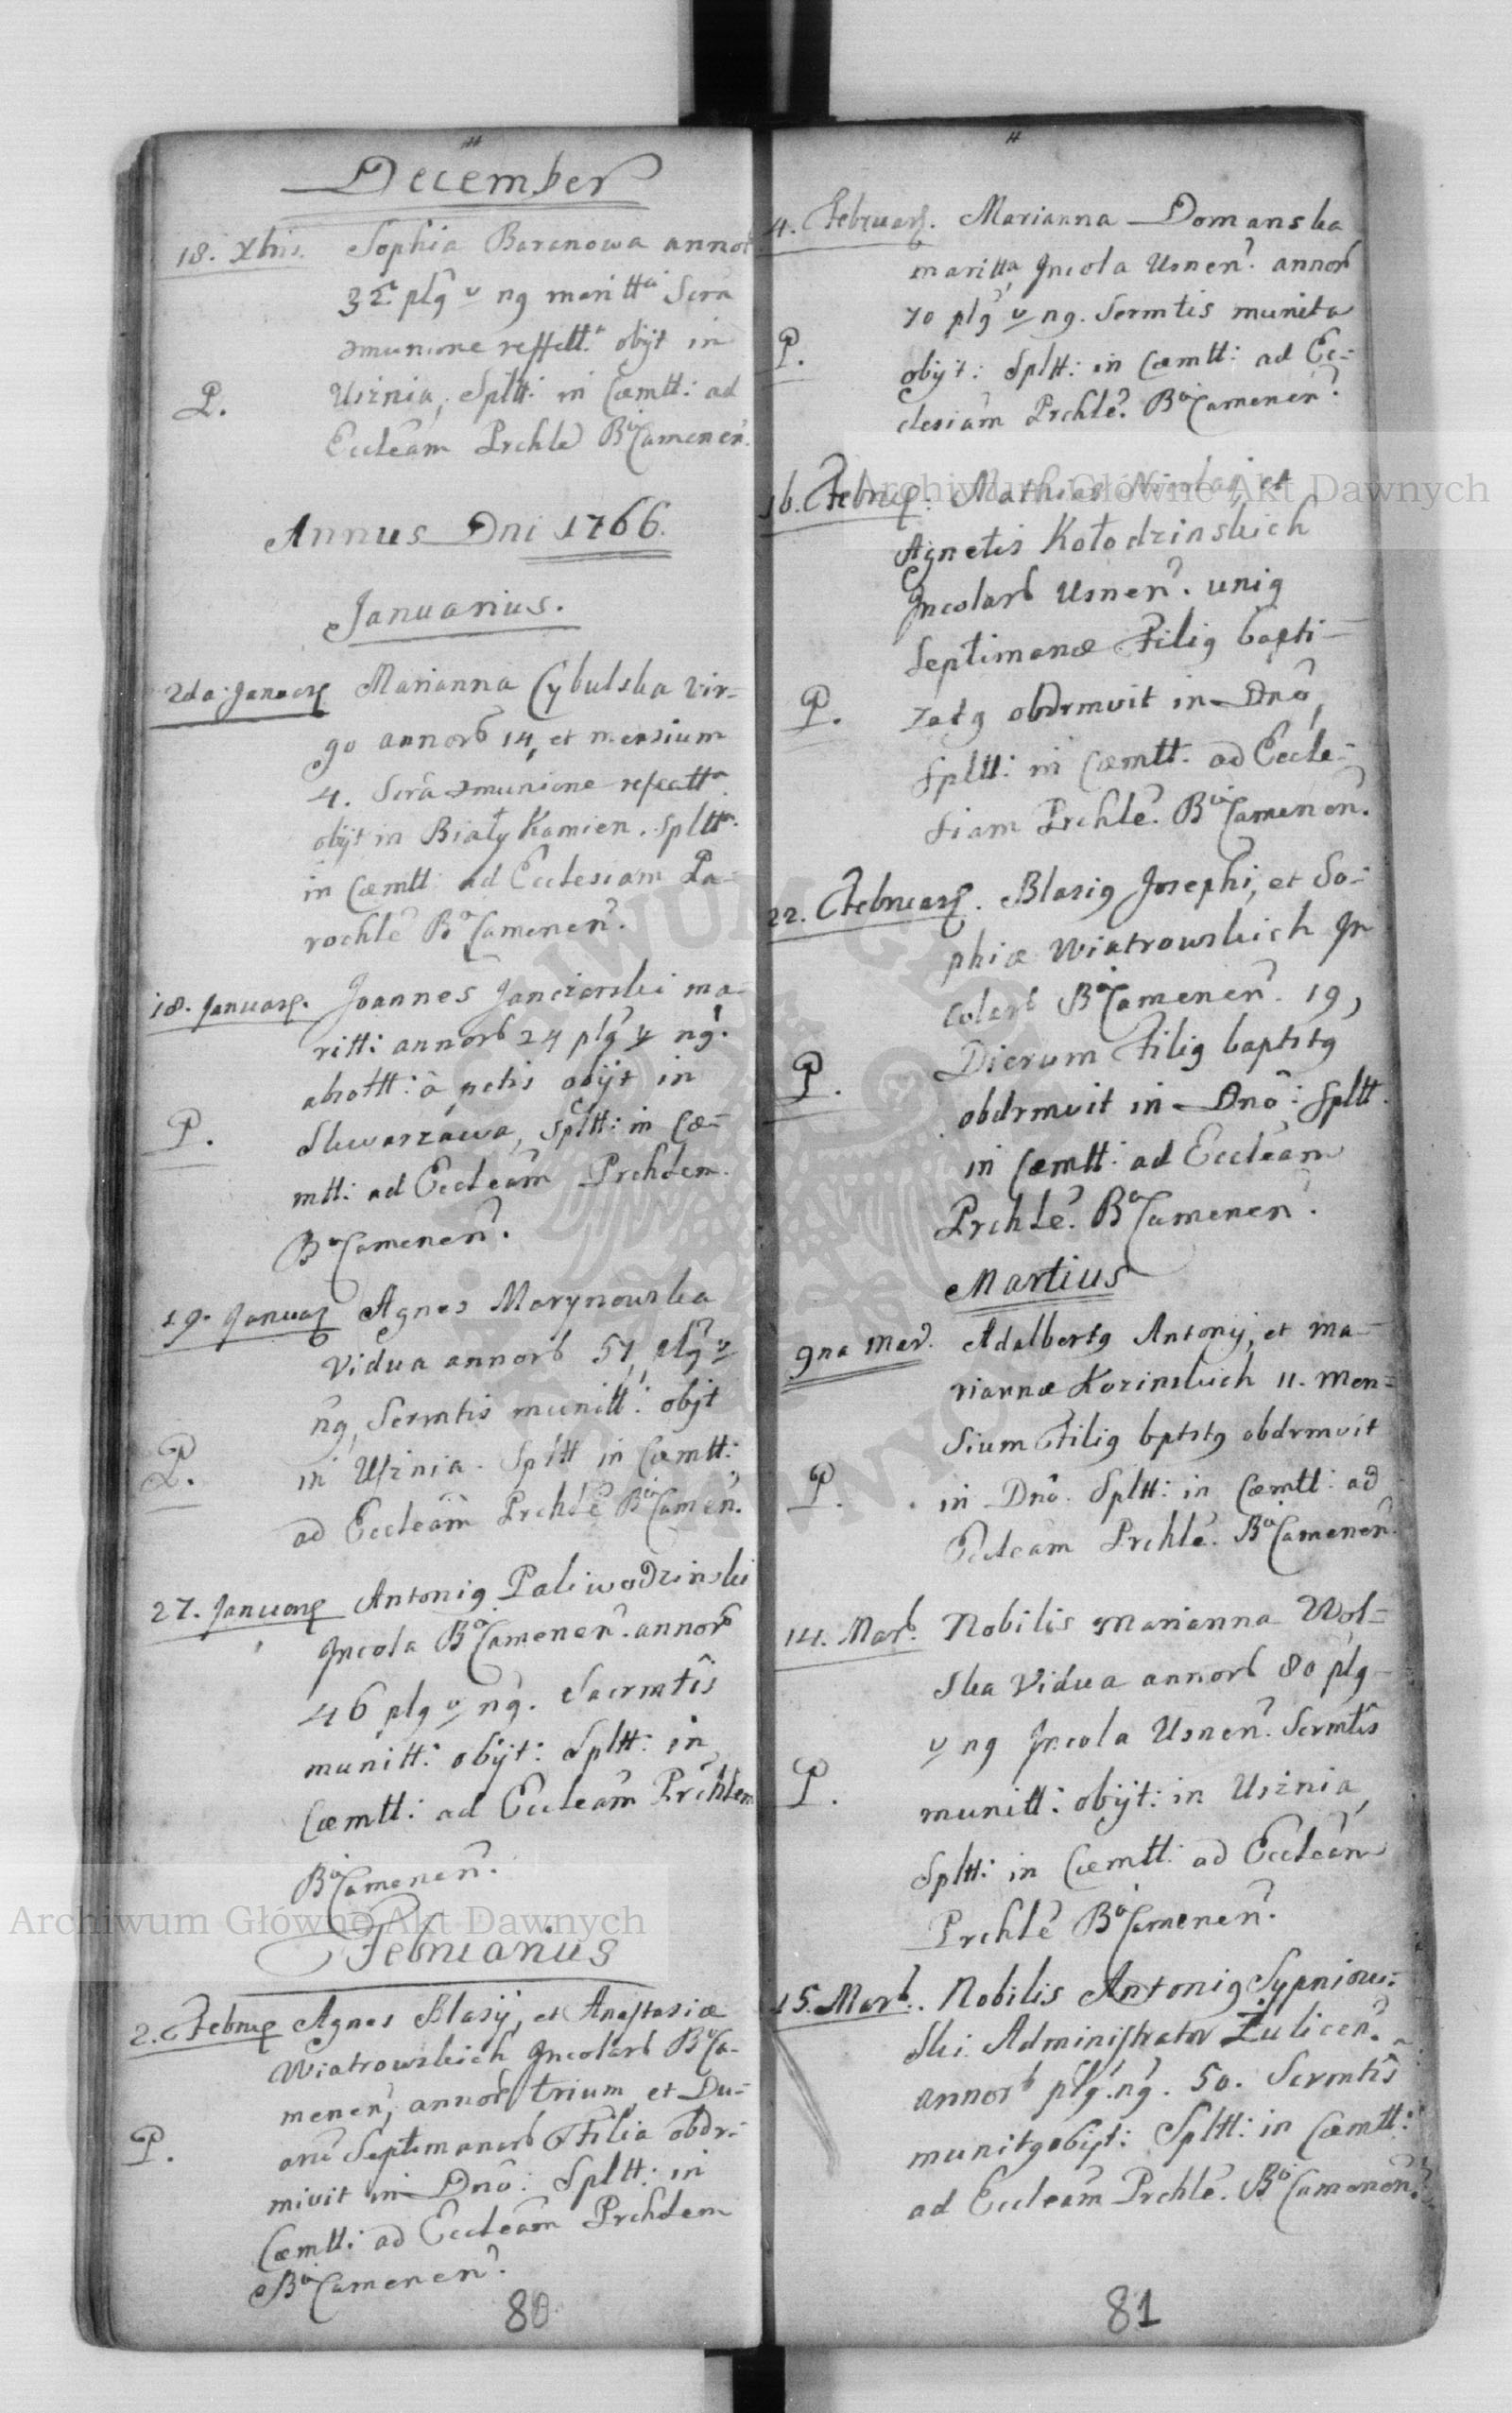 December
18. Xbris. Sophia Baranowa annor
32 plg v ng maritta Scra
əmunione reffctt. obijt in
P. Usznia, Spltt: in Cœmtt: ad
Eccleam Prchle B Camenen.
Annus Dni 1766.
Januarius.
2da Januar Marianna Cybulska vir-
go annorb 14, et mensium
4. Scra əmunione refectt
obijt in Biały Kamien. Spltt.
in Cœmtt ad Ecclesiam Pa-
rochle Ba Camenen.
18. Januar. Joannes Janczarski ma-
ritt: annorb 24 plg v ng.
abott: a pctis obijt in
P. Skwarzawa, Spltt: in Cœ-
mtt: ad Eccleam Prchlem.
Ba Camenen.
19. Januar Agnes Marynowska
Vidua annorb 57, plg v
ng, Scrmtis munitt: obijt
P. in Usznia. Spltt in Cœmtt:
ad Eccleam Prchle Ba Camen.
27. Januar Antonig Paliwodzinski
Jncola Ba Camenen. annorb
46 plg v ng. Sacrmtis
munitt: obijt: Spltt: in
Cœmtt: ad Eccleam Prchlem
Ba Camenen.
Februarius
2. Februar Agnes Blasij, et Anastasiæ
Wiatrowskich Jncolarb Ba Ca-
menen, annorb trium, et Du-
P. aru Septimanarb Filia obdr-
mivit in Dno: Spltt: in
Cœmtt: ad Eccleam Prchlem
Ba Camenen.
80
4. Februar. Marianna Domanska
maritta, Jncola Usnen. annorb
70 plg v ng. Scrmtis munita
P. obijt: Spltt: in Cœmtt: ad Ec-
clesiam Prchle. Ba Camenen.
16. Februar: Mathias Nicolai, et
Agnetis Kołodzinskich
Jncolarb Usnen. unig
Septimanæ Filig bapti-
P. zatg obdrmvit in Dno,
Spltt: in Cœmtt: ad Eccle-
siam Prchle. Ba Camenen.
22. Februar. Blasig Josephi, et So-
phiæ Wiatrowskich Jn
colarb Ba Camenen. 19,
P. Dierum Filig baptstg
obdrmvit in Dno: Spltt.
in Cœmtt: ad Eccleam
Prchle. Ba Camenen.
Martius
9na Mar. Adalbertg Antonij, et Ma-
riannæ Kozinskich 11. Men-
sium Filig bptstg obdrmvit
P. in Dno. Spltt: in Cœmtt: ad
Eccleam Prchle. Ba Camenen.
14. Marb. Nobilis Marianna Wol-
ska Vidua annorb 80 plg
v ng Jncola Usnen. Scrmtis
P. munitt: obijt: in Usznia,
Spltt: in Cœmtt: ad Eccleam
Prchle Ba Camenen.
15. Marb. Nobilis Antonig Sypniows-
ski Administrator Żulicen.
annorb plg. ng. 50. Scrmtis
munitg obijt: Spltt: in Cœmtt:
ad Eccleam Prchle. Ba Camenen.
81
Archiwum Główne Akt Dawnych
Archiwum Główne Akt Dawnych